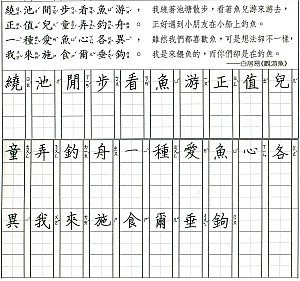 繞池閒步看魚游，
正值兒童弄釣舟。
一種愛魚心各異，
我來施食爾垂鉤。
我繞著池塘散步，看著魚兒游來游去，
正好遇到小朋友在小船上釣魚。
雖然我們都喜歡魚，可是想法卻不一樣，
我是來餵魚的，而你們卻是在釣魚。
——白居易《觀游魚》
繞池閒步看魚游正值兒
童弄釣舟一種愛魚心各
異我來施食爾垂鉤